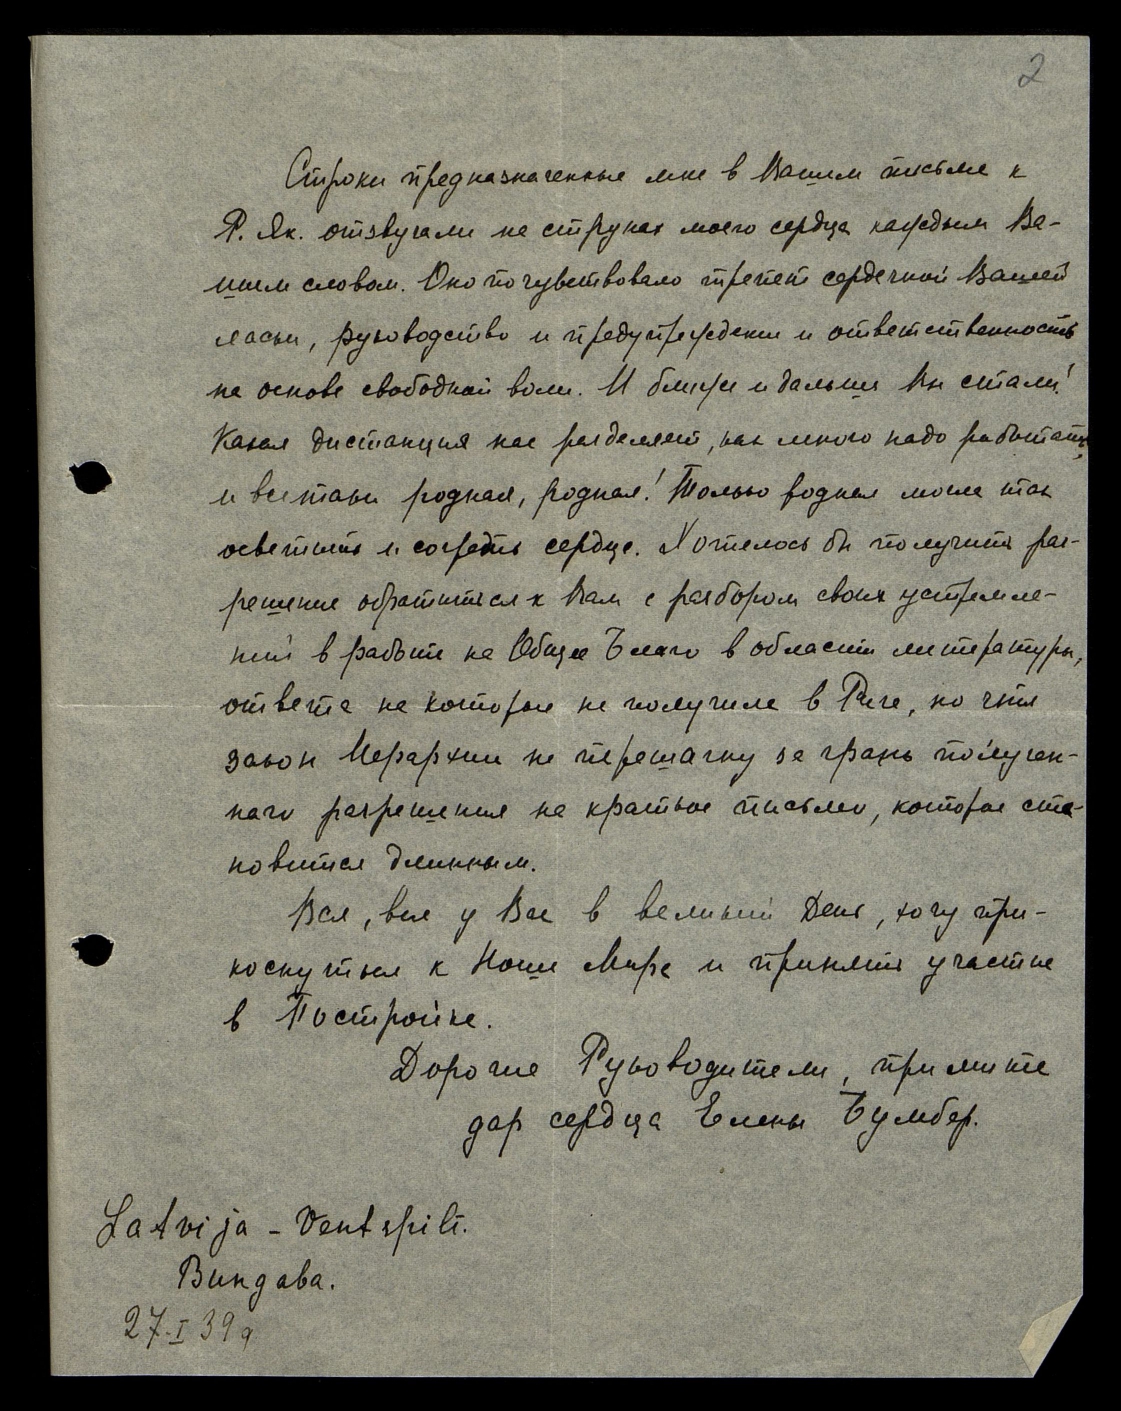 2
Строки предназначенные мне в Вашем письме к
Р. Як. отзвучали на струнах моего сердца каждым Ва-
шим словом. Оно почувствовало трепет сердечной Вашей
ласки, руководство и предупреждения и ответственность
на основе свободной воли. И ближе и дальше Вы стали!
Какая дистанция нас разделяет, как много надо работать,
и все таки родная, родная! Только родная могла так
осветить и согреть сердце. Хотелось бы получить раз-
решение обратиться к Вам с разбором своих устремле-
ний в работе на Общее Благо в области литературы,
ответа на которые не получила в Риге, но чтя
закон Иерархии не перешагну за грань получен-
наго разрешения на краткое письмо, которое ста-
новится длинным.
Вся, вся у Вас в великий День, хочу при-
коснуться к Ноше Мира и принять участие
в Постройке.
Дорогие Руководители, примите
дар сердца Елены Бумбер.
Latvija - Ventspilī.
Виндава.
27-I 39 г